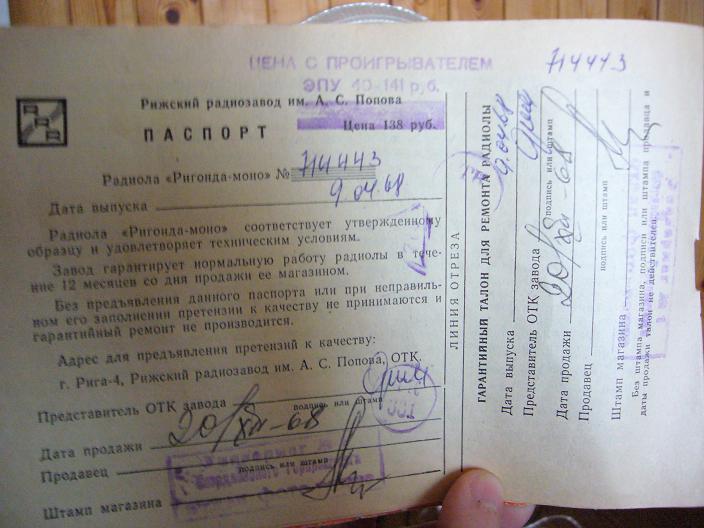 ЦЕНА С ПРОИГРЫВАТЕЛЕМ
ЭПУ 40-141 руб.
714443
Рижский радиозавод им. А. С. Попова
ПАСПОРТ
Цена 138 руб.
Радиола «Ригонда-моно» № 714443
Дата выпуска 9.04.68
Радиола «Ригонда-моно» соответствует утвержденному
образцу и удовлетворяет техническим условиям.
Завод гарантирует нормальную работу радиолы в тече-
ние 12 месяцев со дня продажи ее магазином.
Без предъявления данного паспорта или при неправиль-
ном его заполнении претензии к качеству не принимаются и
гарантийный ремонт не производится.
Адрес для предъявления претензий к качеству:
г. Рига-4, Рижский радиозавод им. А. С. Попова, ОТК.
Представитель ОТК завода
подпись или штамп
Дата продажи 20/XII-68
Продавец
подпись или штамп
Штамп магазина
ЛИНИЯ ОТРЕЗА
ГАРАНТИЙНЫЙ ТАЛОН ДЛЯ РЕМОНТА РАДИОЛЫ
Дата выпуска 9.04.68
Представитель ОТК завода
подпись или штамп
Дата продажи 20/XII-68
Продавец
подпись или штамп
Штамп магазина
Без штампа магазина, подписи или штампа продавца и
даты продажи талон не действителен.